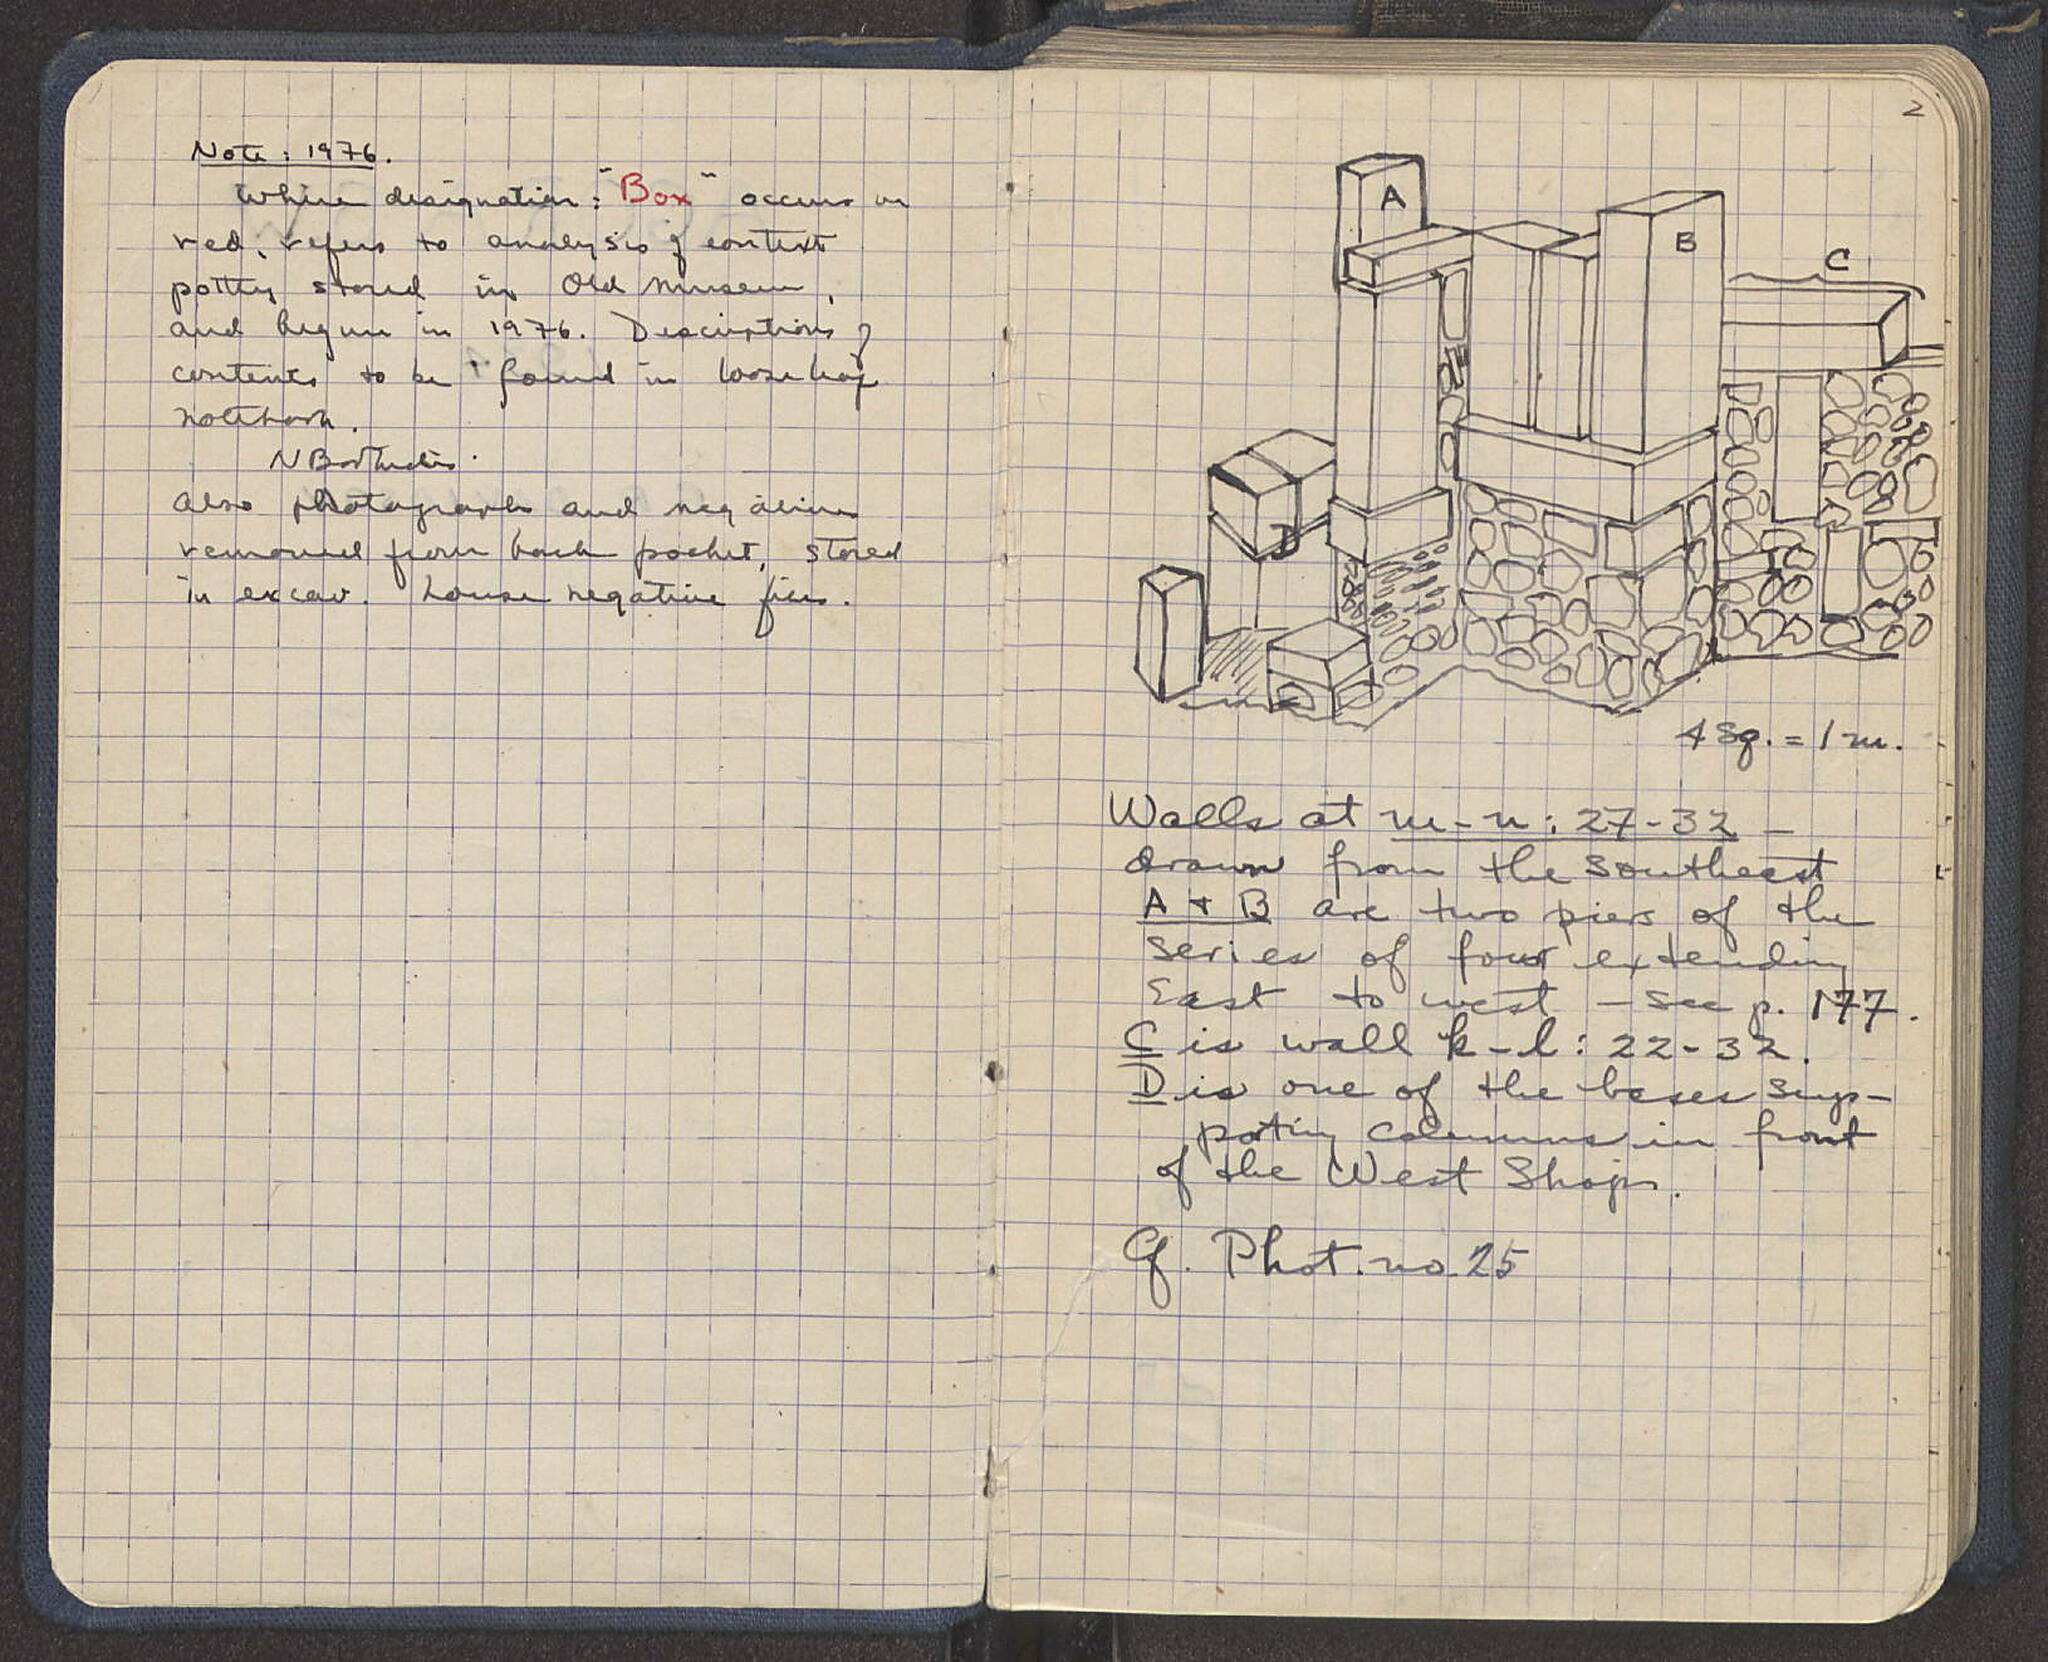 Note: 1976.
Where designation: "Box" occurs in
red, refers to analysis of context
pottery stored in Old Museum,
and begun in 1976. Descriptions of
contents to be found in looseleaf
notebook.
N Bookidis.
Also photographs and negatives
removed from back pocket, stored
in excav. house negative files.
2
A
B
C
D
4 Sq. = 1 m.
Walls at m-n: 27-32 -
drawn from the southeast
A + B are two piers of the
series of four extending
East to west - see p. 177.
C is wall k-l: 22-32.
D is one of the bases sup-
porting columns in front
of the West Shops.
Cf. Phot. no. 25